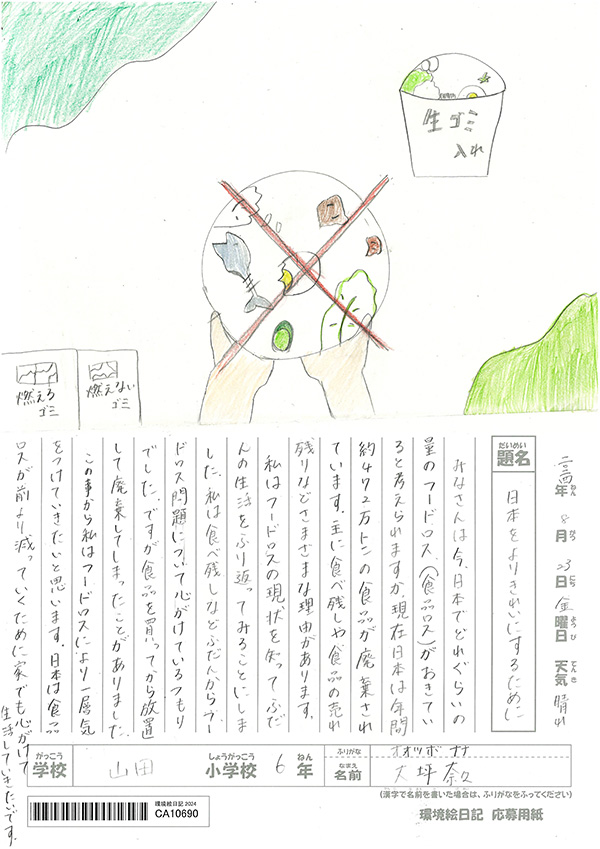 生ゴミ
入れ
燃える
ゴミ
燃えない
ゴミ
二〇二四年ねん 8月がつ 23日にち 金曜日ようび 天気てんき 晴れ
だいめい
題名
日本をよりきれいにするために
みなさんは今、日本でどれぐらいの
量のフードロス、(食品ロス)がおきてい
ると考えられますか。現在日本は年間
約472万トンの食品が廃棄され
ています。主に食べ残しや食品の売れ
残りなどさまざまな理由があります。
私はフードロスの現状を知ってふだ
んの生活をふり返ってみることにしま
した。私は食べ残しなどふだんからフー
ドロス問題について心がけているつもり
でした。ですが食品を買ってから放置
して廃棄してしまったことがありました。
この事から私はフードロスにより一層気
をつけていきたいと思います。日本は食品
ロスが前より減っていくために家でも心がけて
生活していきたいです。
がっこう
学校
山田
しょうがっこう
小学校
6
ねん
年
ふりがな
オオツボ ナナ
なまえ
名前
大坪 奈
(漢字で名前を書いた場合は、ふりがなをふってください)
環境絵日記 2024
CA10690
環境絵日記 応募用紙